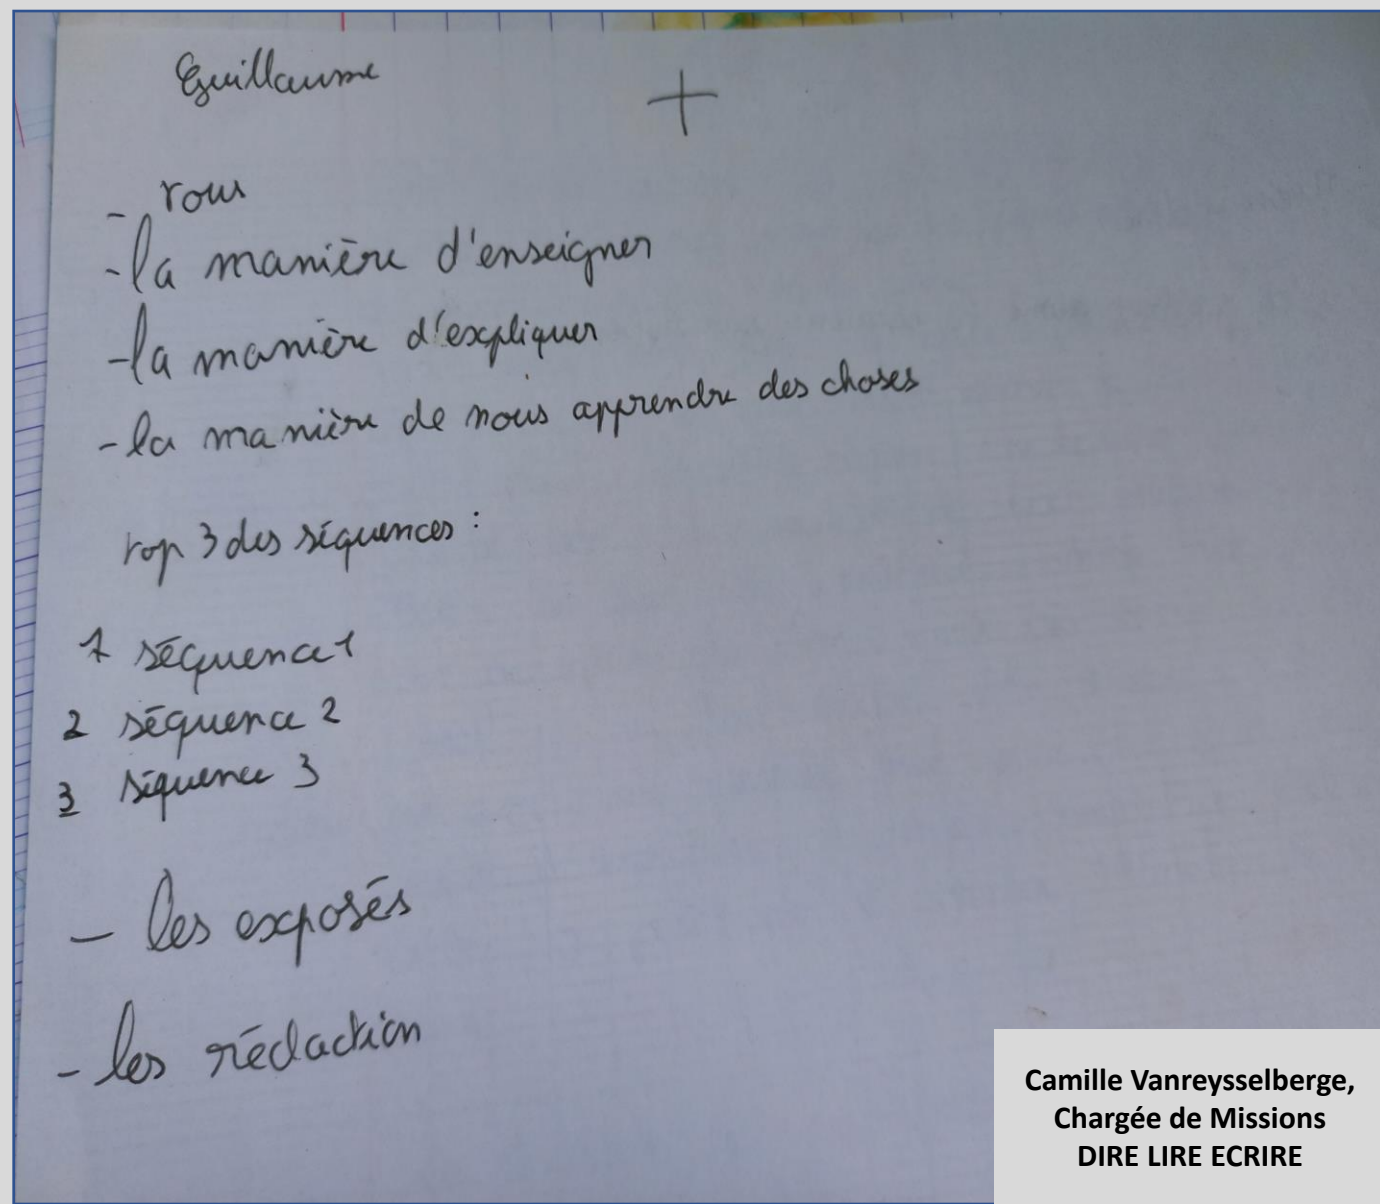 Guillaume
+
- vous
- la manière d'enseigner
- la manière d'expliquer
- la manière de nous apprendre des choses
top 3 des séquences :
1 séquence 1
2 séquence 2
3 séquence 3
- les exposés
- les rédaction
Camille Vanreysselberge,
Chargée de Missions
DIRE LIRE ECRIRE